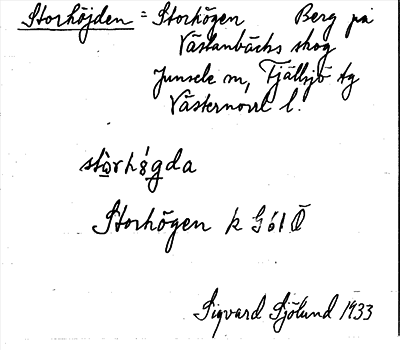 Storhöjden = Storhögen Berg på
Västanbäcks skog
Junsele sn, Fjällsjö tg
Västernorrl l.
stòrhǿgda
Storhögen k G61 Ö
Sigvard Sjölund 1933